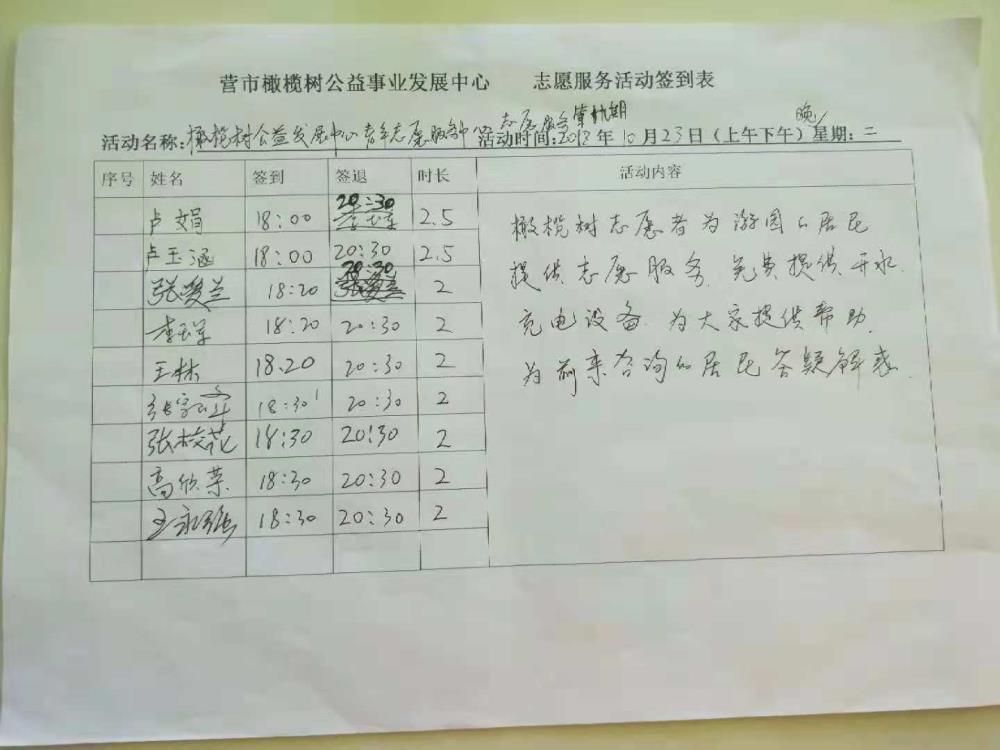 营市橄榄树公益事业发展中心 志愿服务活动签到表
活动名称:橄榄树公益发展中心青年志愿服务 志愿服务第 期 活动时间:2018年10月23日(上午下午)晚 星期:二
序号 姓名 签到 签退 时长 活动内容
卢文娟 18:00 20:30 2.5
卢玉涵 18:00 20:30 2.5
张爱兰 18:20 20:30 2
李玉军 18:20 20:30 2
王林 18.20 20:30 2
张 18:30 20:30 2
张桂花 18:30 20:30 2
高欣荣 18:30 20:30 2
王永强 18:30 20:30 2
橄榄树志愿者为游园的居民
提供志愿服务.免费提供开水.
充电设备.为大家提供帮助.
为前来咨询的居民答疑解惑.